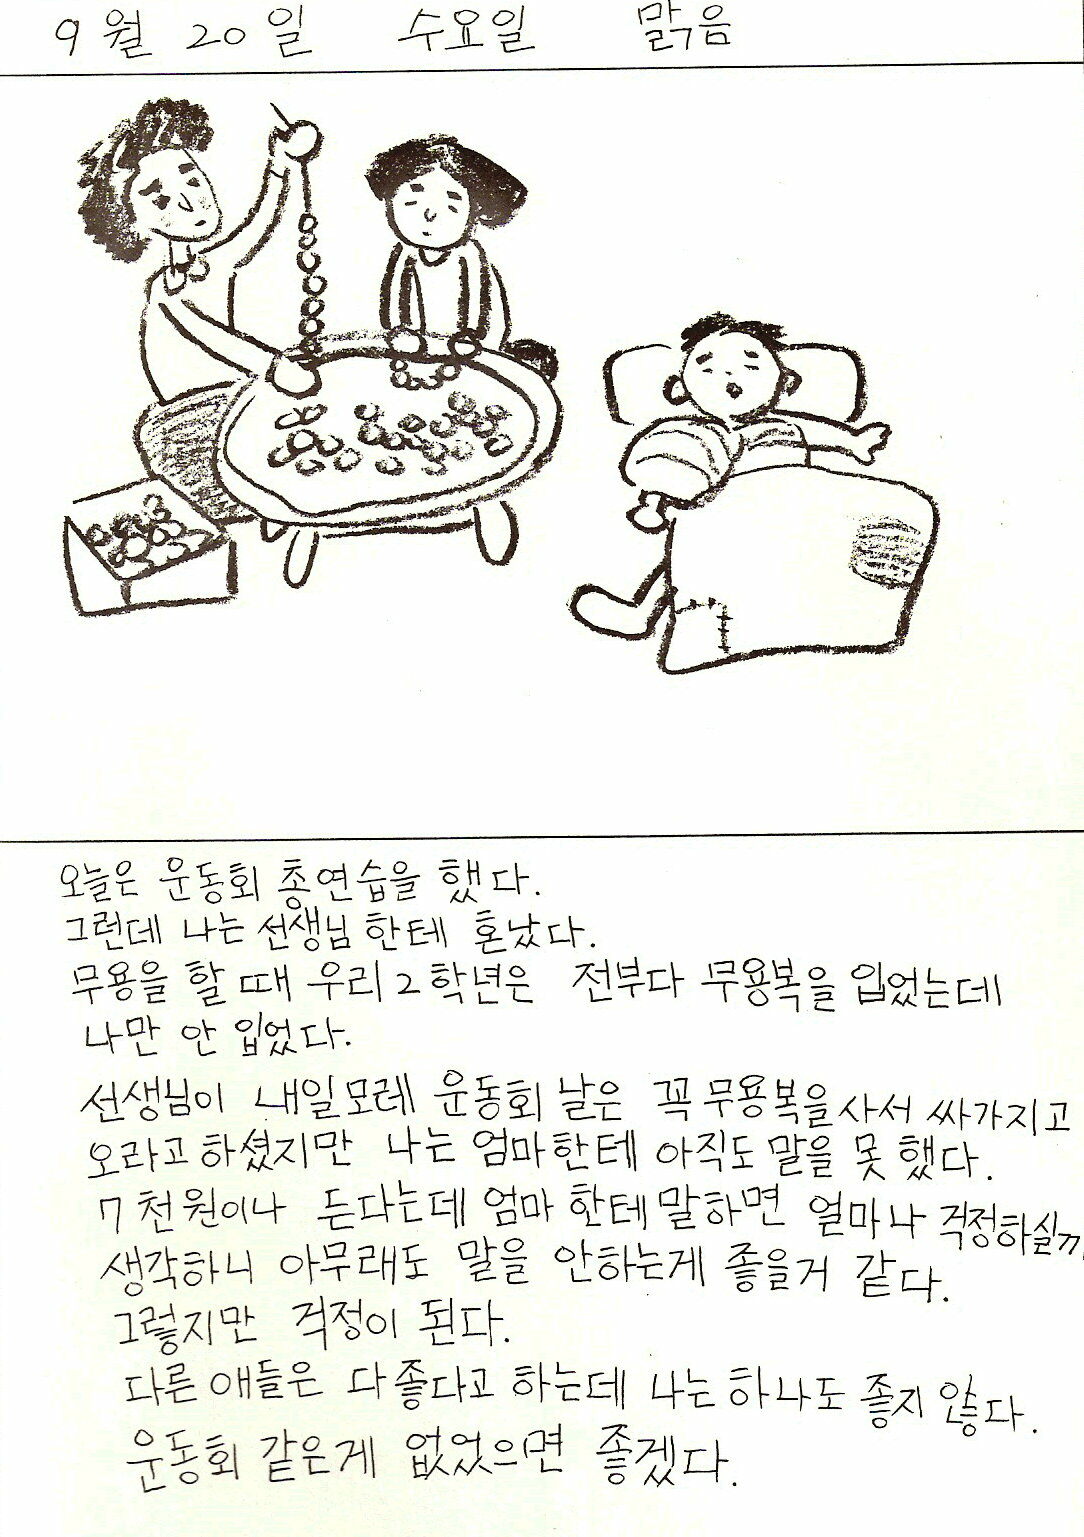 9월 20일 수요일 맑음
오늘은 운동회 총연습을 했다.
그런데 나는 선생님 한테 혼났다.
무용을 할 때 우리 2학년은 전부다 무용복을 입었는데
나만 안 입었다.
선생님이 내일모레 운동회 날은 꼭 무용복을 사서 싸가지고
오라고 하셨지만 나는 엄마한테 아직도 말을 못 했다.
7천원이나 든다는데 엄마 한테 말하면 얼마나 걱정하실까
생각하니 아무래도 말을 안하는게 좋을거 같다.
그렇지만 걱정이 된다.
다른 애들은 다 좋다고 하는데 나는 하나도 좋지 않다.
운동회 같은게 없었으면 좋겠다.